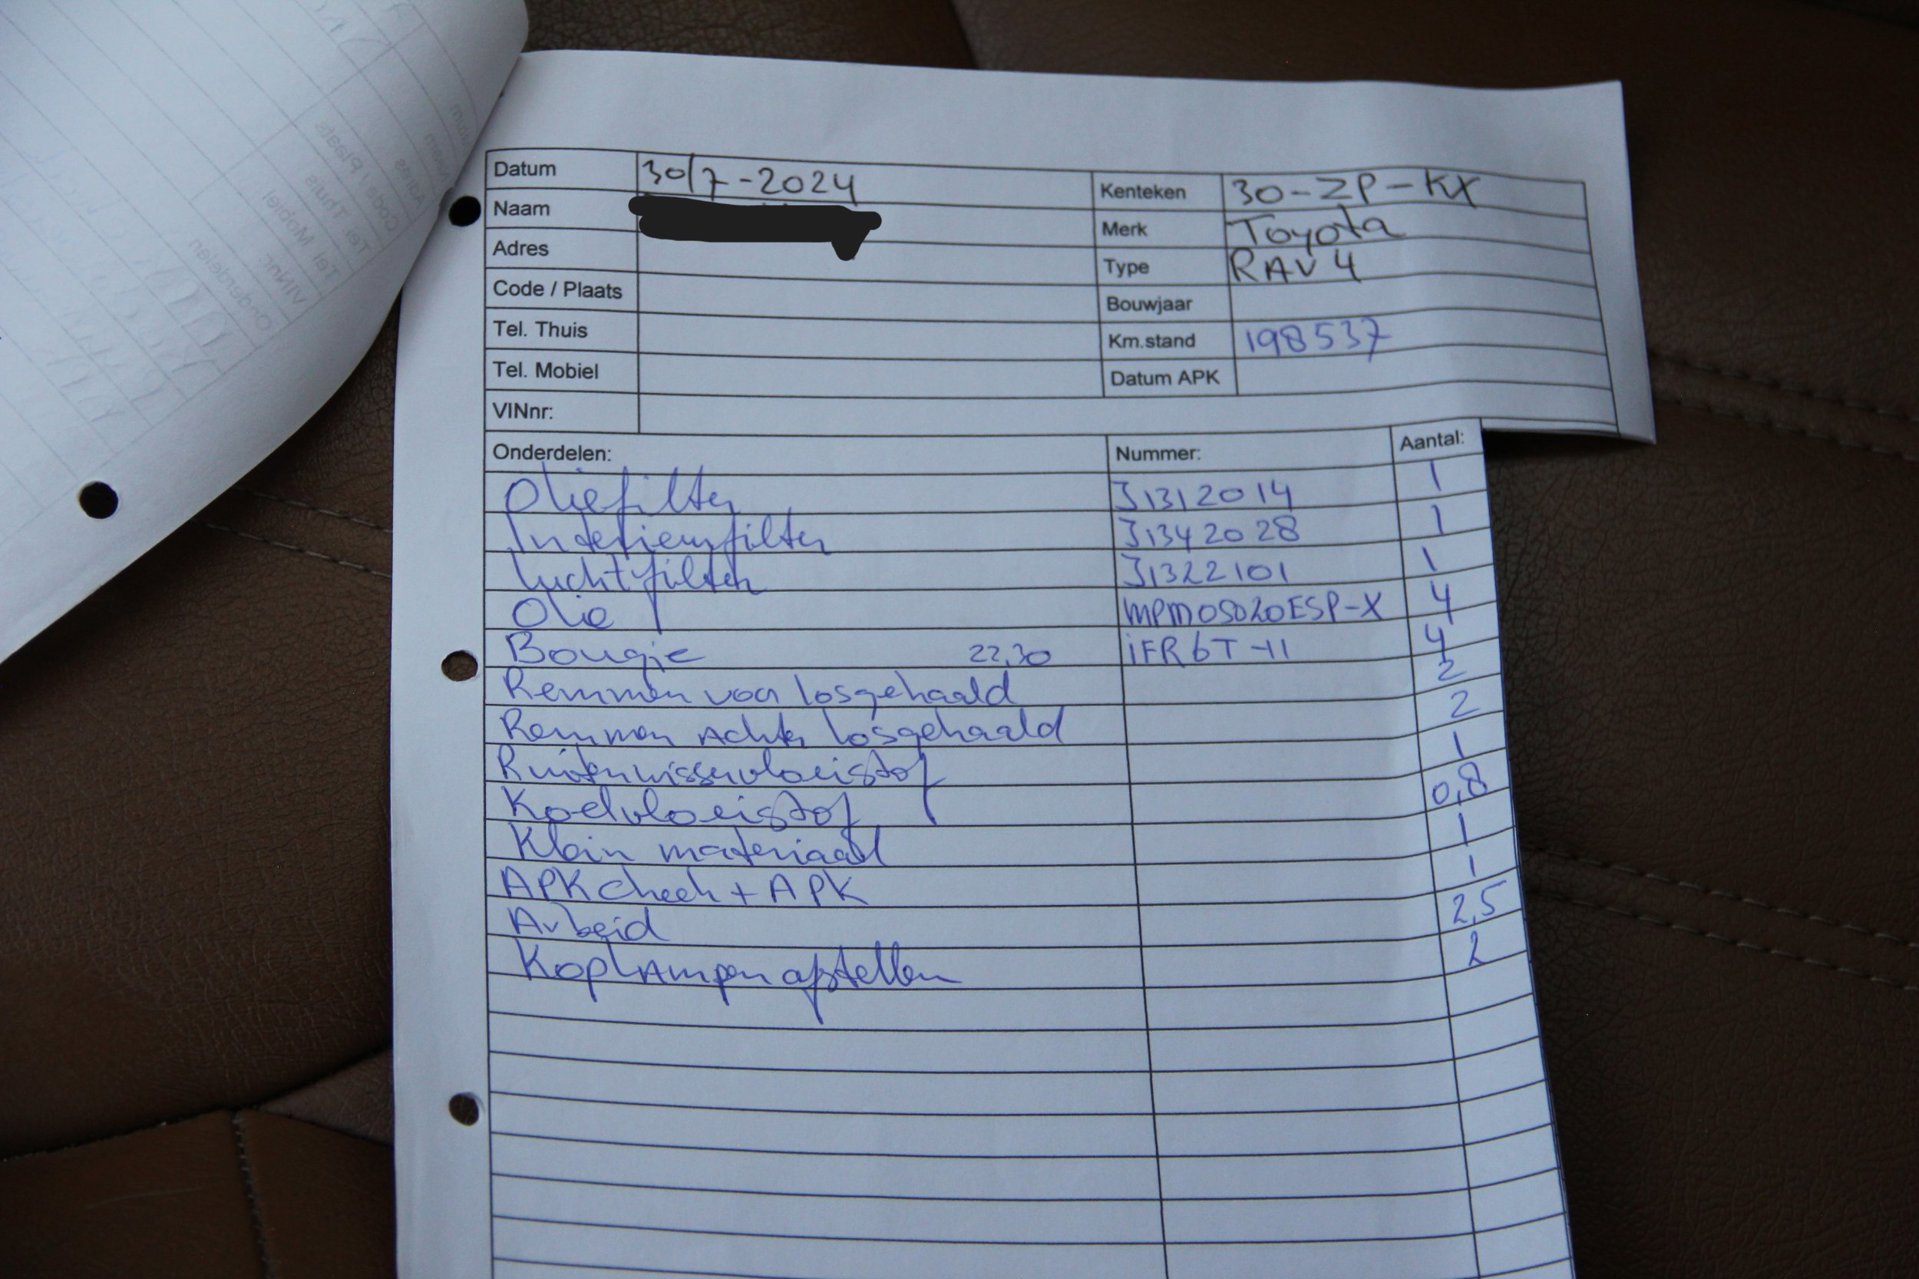 Datum 30/7-2024 Kenteken 30-ZP-KX
Naam Merk Toyota
Adres Type RAV4
Code / Plaats Bouwjaar
Tel. Thuis Km.stand 198537
Tel. Mobiel Datum APK
VINnr:
Onderdelen: Nummer: Aantal:
Oliefilter J1312014 1
Interieurfilter J1342028 1
Luchtfilter J1322101 1
Olie MPM05020ESP-X 4
Bougie 22,30 iFR6T-11 4
Remmen voor losgehaald 2
Remmen Achter losgehaald 2
Ruitenwisservloeistof 1
Koelvloeistof 0,8
Klein materiaal 1
APK check + APK 1
Arbeid 2,5
Koplampen afstellen 2